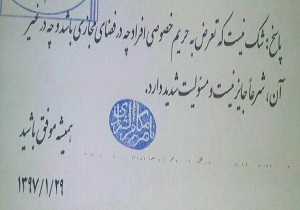 پاسخ: شک نیست که تعرض به حریم خصوصی افراد چه در فضای مجازی باشد و چه در غیر
آن، شرعاً جایز نیست و مسئولیت شدید دارد.
همیشه موفق باشید
۱۳۹۷/۱/۲۹